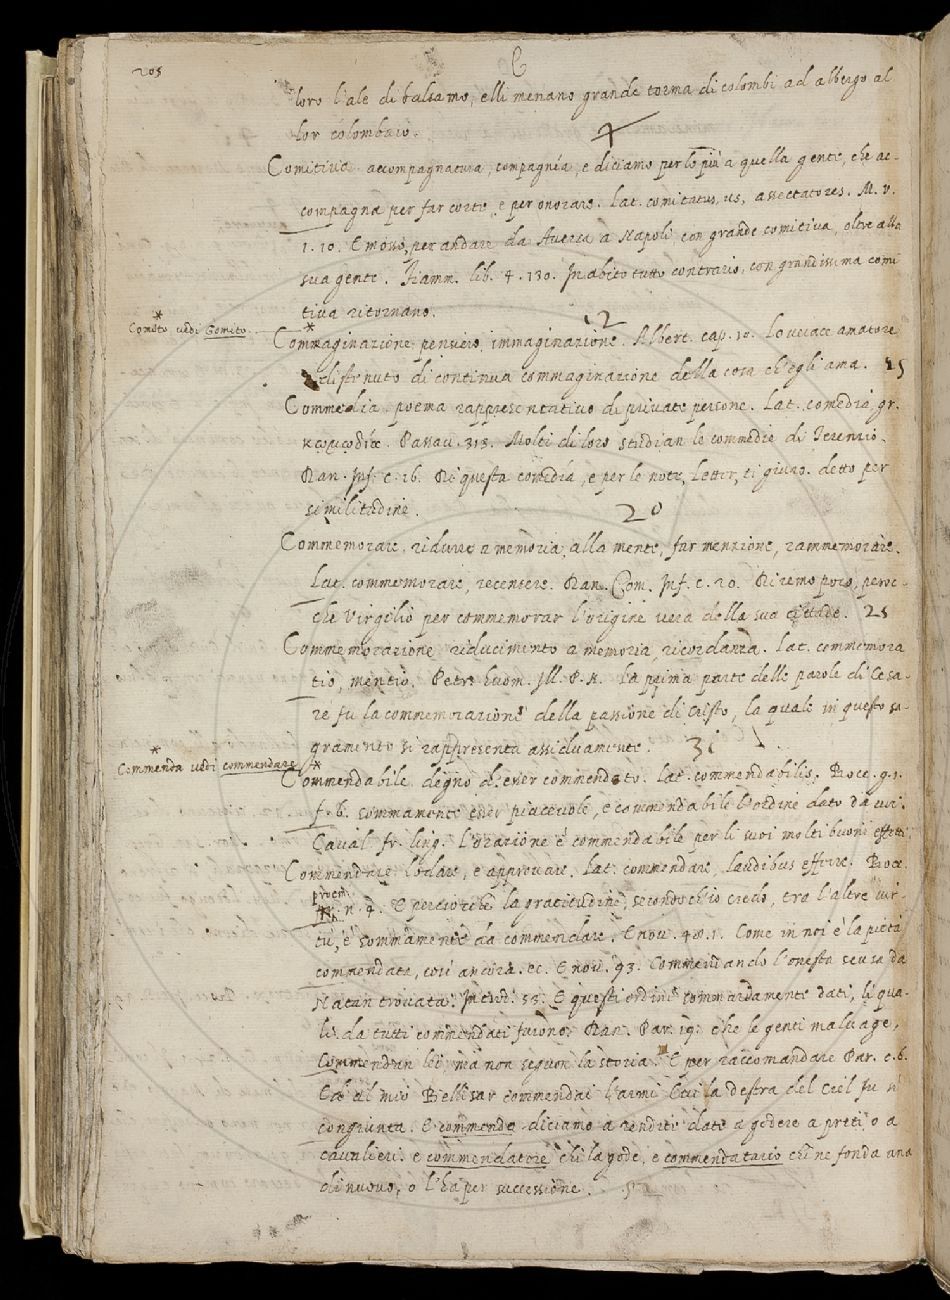 205
C
loro l'ale di balsamo, elli menano grande torma di colombi ad albergo al
lor colombaio.
4
Comitiva. accompagnatura, compagnía, e diciamo per lo più a quella gente, che ac-
compagna per far corte, e per onorare. Lat. comitatus, us, assectatores. M. V.
1. 10. E mosso, per andare da Aversa a Napoli con grande comitiva, oltre alla
sua gente. Fiamm. lib. 4. 130. In abito tutto contrario, con grandissima comi
tiva ritornano.
12
* Comito vedi Gomito.
* Commaginazione. pensiero, immaginazione. Albert. cap. 10. Lo verace amatore
è distenuto di continua commaginazione della cosa ch'egli ama. 15
Commedia. poema rappresentativo di private persone. Lat. comedia, gr.
κωμῳδία. Passav. 313. Molti di loro studian le commedie di Terenzio.
Dan. Inf. c. 16. Di questa comedía, e per le note, Letter, ti giuro. detto per
similitudine.
20
Commemorare. ridurre a memoria, alla mente, far menzione, rammemorare.
Lat. commemorare, recensere. Dan. Com. Inf. c. 20. Diremo poco, peroc-
chè Virgilio per commemorar l'origine vera della sua cittade. 25
Commemorazione. riducimento a memoria, ricordanza. Lat. commemora
tio, mentio. Petr. huom. Ill. P. N. La prima parte delle parole di Cesa-
re fu la commemorazione della passione di Cristo, la quale in questo sa-
gramento si rappresenta assiduamente. 31
* Commenda vedi commendare
* Commendabile. degno d'esser commendato. Lat. commendabilis. Bocc. g. 1.
f. 6. sommamente esser piacevole, e commendabile l'ordine dato da voi.
Caval. fr. ling. L'orazione è commendabile per li suoi molti buoni effetti.
Commendare. lodare, e approvare. Lat. commendare, laudibus efferre. Bocc.
proem.
n. 4. E perciocchè la gratitudine, secondo ch'io credo, tra l'altre vir-
tù, è sommamente da commendare. E nov. 48. 1. Come in noi è la pietà
commendata, così ancora. ec. E nov. 93. Commendando l'onesta scusa da
Natan trovata. Introd. 55. E questi ordini sommariamente dati, li qua-
li da tutti commendati furono. Dan. Par. 19. che le genti malvage,
Commendan lei, ma non seguon la storia. E per raccomandare Par. c. 6.
E al mio Bellisar commendai l'armi Cui la destra del Ciel fu sì
congiunta. E commende diciamo a rendite date a godere a preti, o a
cavalieri. e commendatore chi la gode, e commendatario chi ne fonda una
di nuovo, o l'ha per successione.